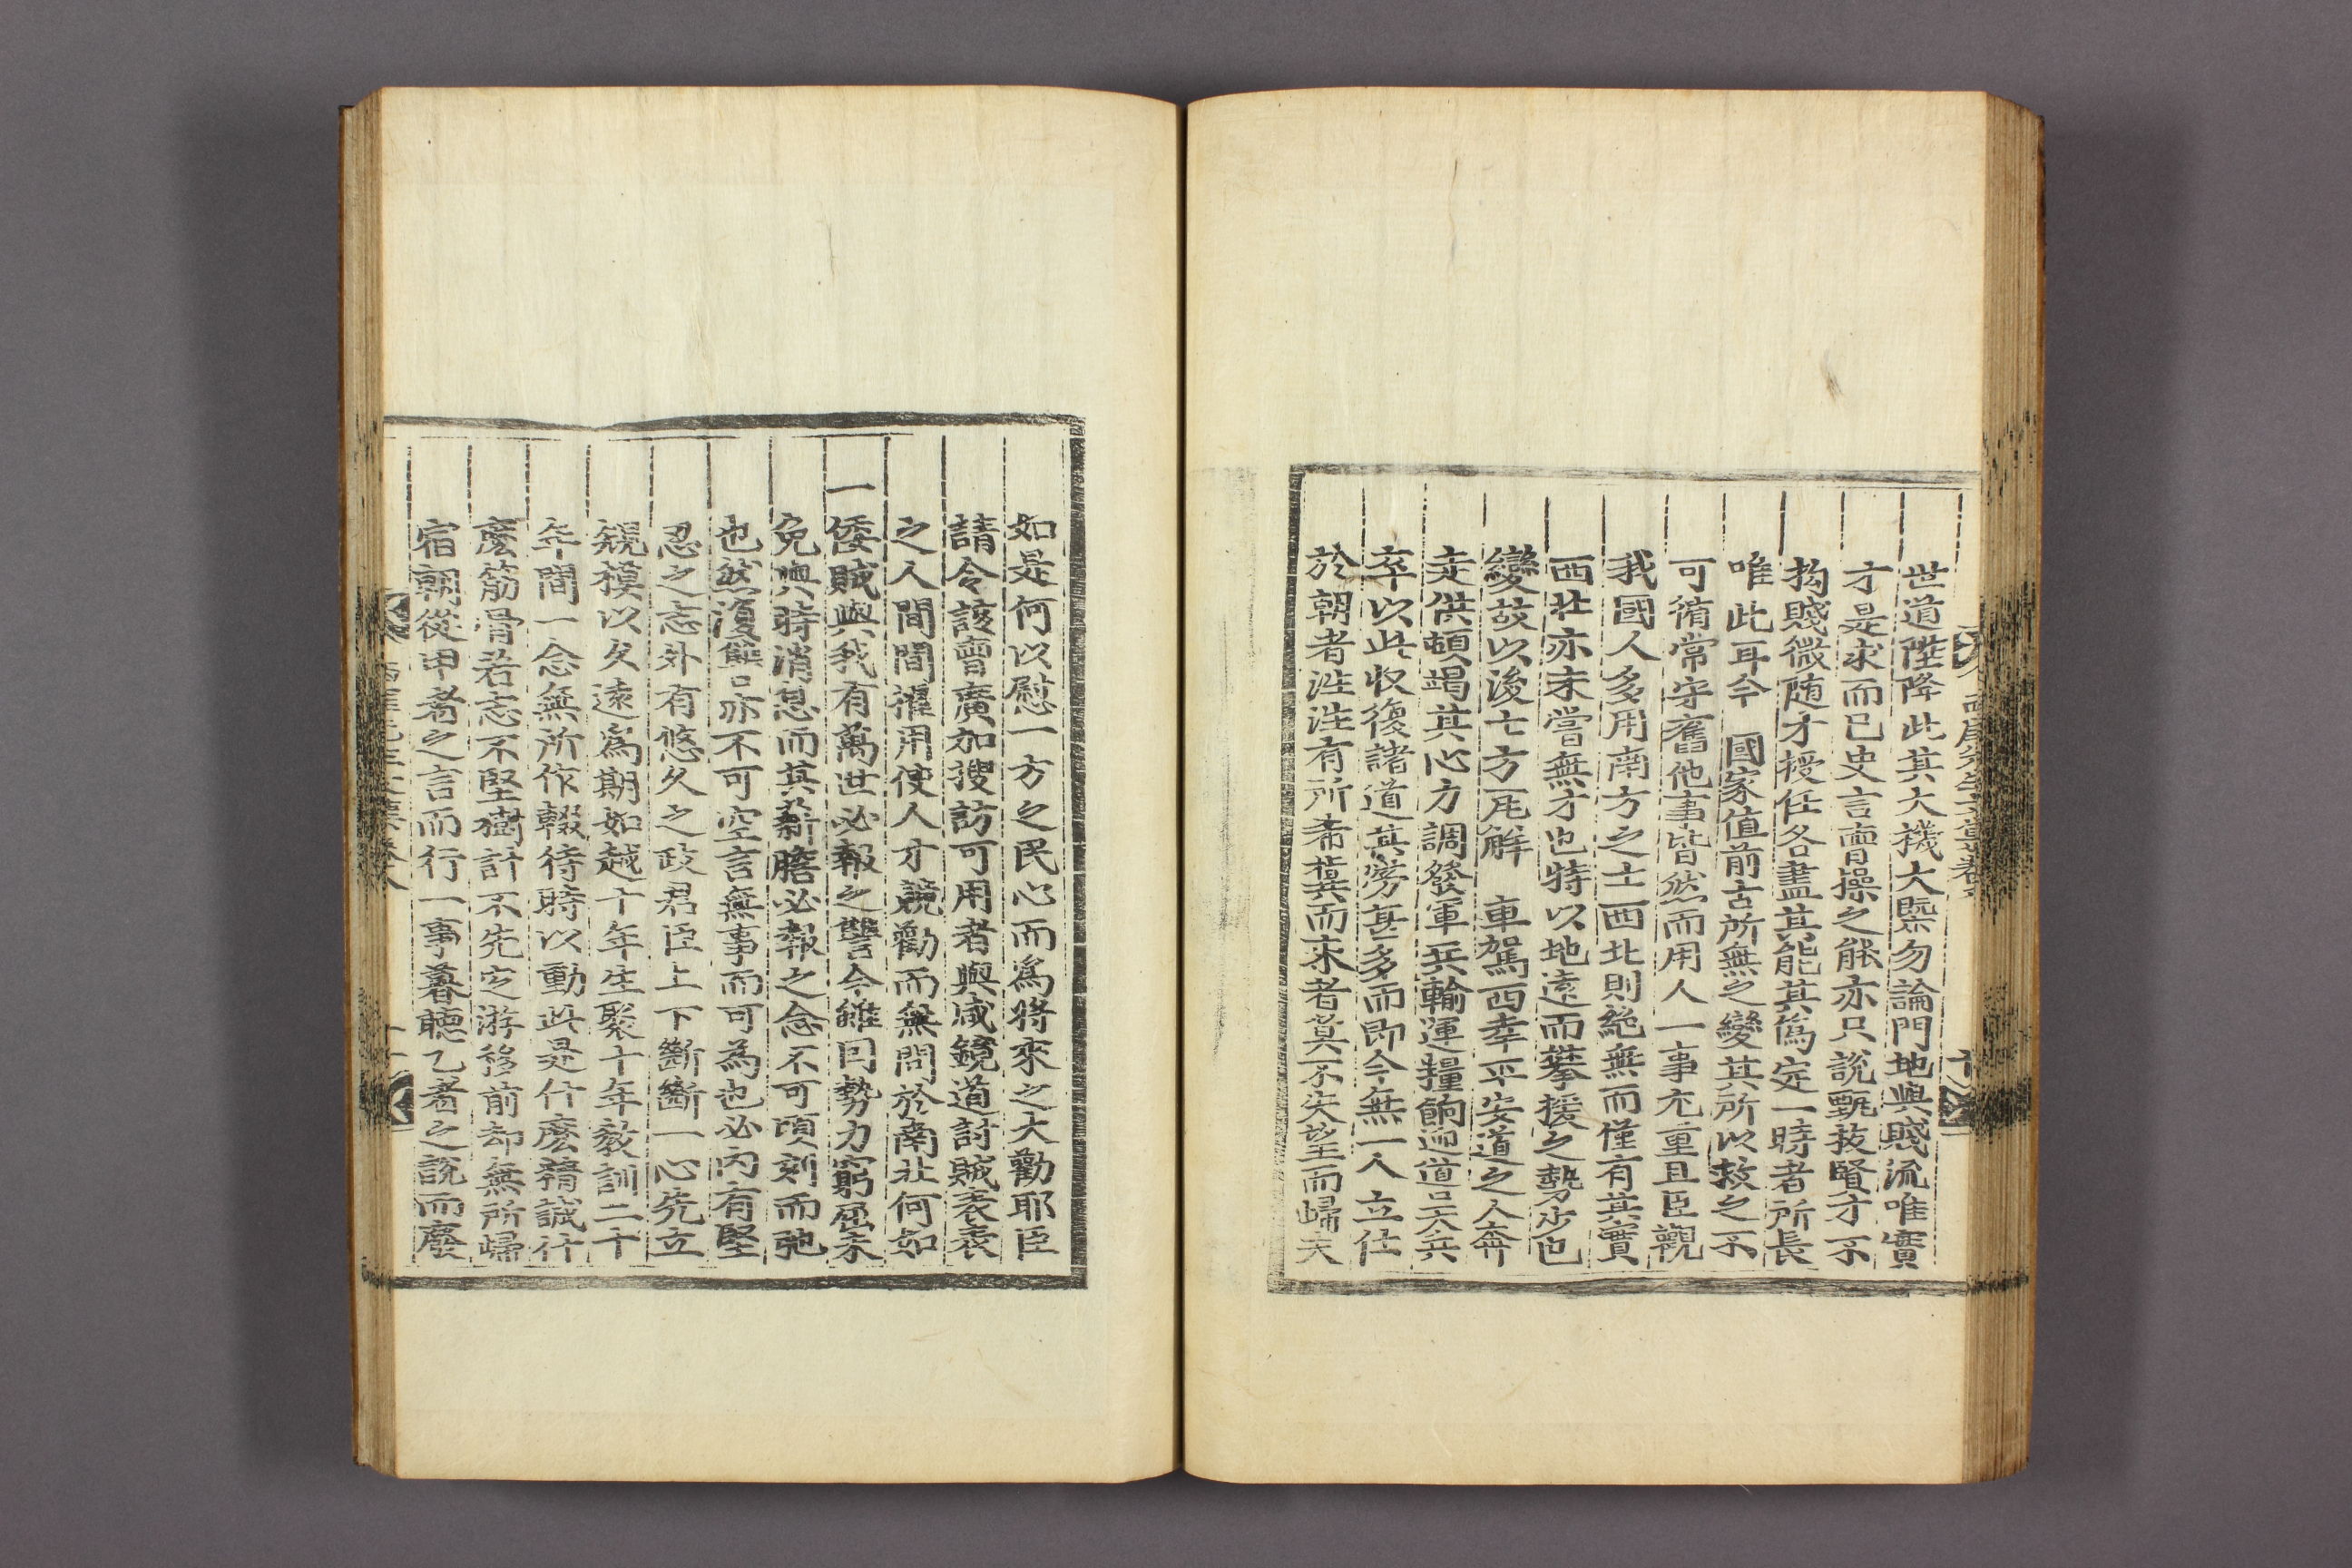 世道陞降此其大機大槩勿論門地與賤流唯實
才是求而已史言曹操之能亦只說甄拔賢才不
拘賤微随才授任各盡其能其爲定一時者所長
唯此耳今 國家值前古所無之變其所以救之不
可循常守舊他事皆然而用人一事尤重且臣觀
我國人多用南方之士西北則絶無而僅有其實
西北亦未嘗無才也特以地遠而攀援之勢少也
變故以後七方瓦解 車駕西幸平安道之人奔
走供頓竭其心力調發軍兵輸運糧餉迎導天兵
卒以此收復諸道其勞甚多而即今無一人立仕
於朝者往往有所希冀而來者莫不失望而歸夫
如是何以慰一方之民心而爲將來之大勸耶臣
請令該曹廣加搜訪可用者與咸鏡道討賊表表
之人間間擢用使人才競勸而無問於南北何如
一倭賊與我有萬世必報之讐今雖因勢力窮屈未
免與時消息而其薪膽必報之念不可頃刻而弛
也然復讐亦不可空言無事而可為也必內有堅
忍之志外有悠久之政君臣上下斷斷一心先立
規模以久遠爲期如越十年生聚十年教訓二十
年間一念無所作輟待時以動此是什麽精誠什
麽筋骨若志不堅樹計不先定游移前却無所歸
宿朝從甲者之言而行一事暮聽乙者之說而廢